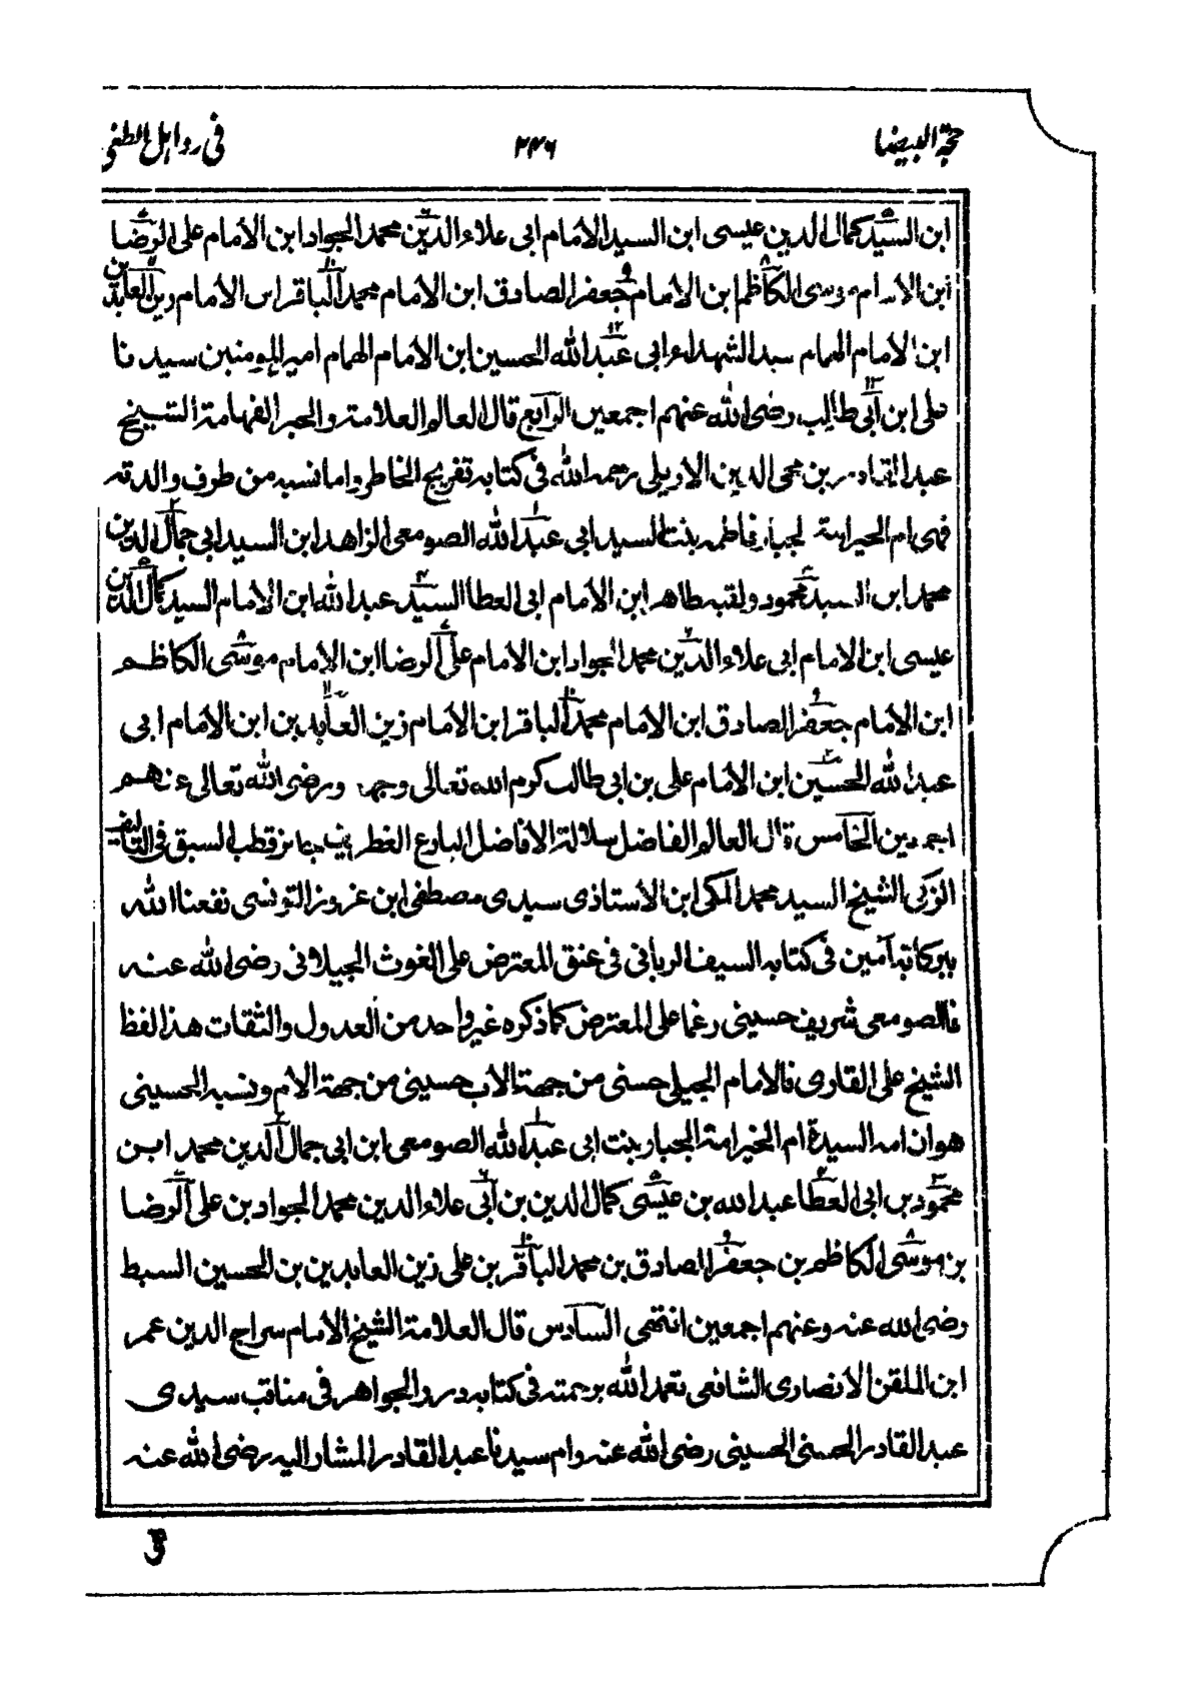 حجة البيضا
٢٤٦
فى رد اهل الطغى
ابن السيد كمال الدين عيسى ابن السيد الامام ابى علاء الدين محمد الجواد ابن الامام على الرضا
ابن الامام موسى الكاظم ابن الامام جعفر الصادق ابن الامام محمد الباقر ابن الامام زين العابدين
ابن الامام الهمام سيد الشهداء ابى عبد الله الحسين ابن الامام الهمام امير المومنين سيدنا
على ابن ابى طالب رضى الله عنهم اجمعين الرابع قال العالم العلامة والحبر الفهامة الشيخ
عبد القادر بن محى الدين الاربلى رحمه الله فى كتابه تفريح الخاطر واما نسبه من طرف والدته
فهى ام الخير امة الجبار فاطمه بنت السيد ابى عبد الله الصومعى الزاهد ابن السيد ابى جمال الدين
محمد ابن السيد محمود ولقبه طاهر ابن الامام ابى العطا السيد عبد الله ابن الامام السيد كمال الدين
عيسى ابن الامام ابى علاء الدين محمد الجواد ابن الامام على الرضا ابن الامام موسى الكاظم
ابن الامام جعفر الصادق ابن الامام محمد الباقر ابن الامام زين العابدين ابن الامام ابى
عبد الله الحسين ابن الامام على بن ابى طالب كرم الله تعالى وجهه ورضى الله تعالى عنهم
اجمعين الخامس قال العالم الفاضل سلالة الافاضل البارع الغطريف حائز قطب السبق فى التاليف
الزكى الشيخ السيد محمد المكى ابن الأستاذى سيدى مصطفى ابن عزوز التونسى نفعنا الله
ببركاته آمين فى كتابه السيف الربانى فى عنق المعترض على الغوث الجيلانى رضى الله عنه
فالصومعى شريف حسينى رغما على المعترض كما ذكره غير واحد من العدول والثقات هذا لفظ
الشيخ على القارى فالامام الجيلى حسنى من جهة الأب حسينى من جهة الأم ونسبه الحسينى
هو ان امه السيدة ام الخير امة الجبار بنت ابى عبد الله الصومعى ابن ابى جمال الدين محمد ابن
محمود بن ابى العطا عبد الله بن عيسى كمال الدين بن ابى علاء الدين محمد الجواد بن على الرضا
بن موسى الكاظم بن جعفر الصادق بن محمد الباقر بن على زين العابدين بن الحسين السبط
رضى الله عنه وعنهم اجمعين انتهى السادس قال العلامة الشيخ الامام سراج الدين عمر
ابن الملقن الانصارى الشافعى تغمد الله برحمته فى كتابه درر الجواهر فى مناقب سيدى
عبد القادر الحسنى الحسينى رضى الله عنه وام سيدنا عبد القادر المشار اليه رضى الله عنه